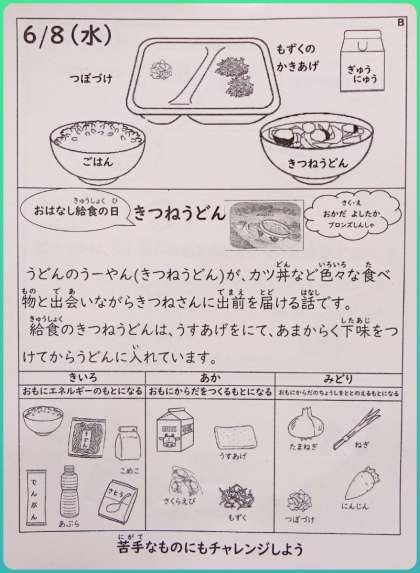 B
6/8(水)
つぼづけ
もずくの
かきあげ
ぎゅう
にゅう
ごはん
きつねうどん
おはなし給食の日
きゅうしょく ひ
きつねうどん
さく・え
おかだ よしたか
ブロンズしんしゃ
うどんのうーやん(きつねうどん)が、カツ丼など色々な食べ
どん いろいろ た
物と出会いながらきつねさんに出前を届ける話です。
もの で あ でまえ とど はなし
給食のきつねうどんは、うすあげをにて、あまからく下味をつ
きゅうしょく したあじ
けてからうどんに入れています。
い
きいろ
おもにエネルギーのもとになる
あか
おもにからだをつくるもとになる
みどり
おもにからだのちょうしをととのえるもとになる
うどん
こめこ
でんぷん
あぶら
さとう
うすあげ
さくらえび
もずく
たまねぎ
ねぎ
つぼづけ
にんじん
苦手なものにもチャレンジしよう
にがて